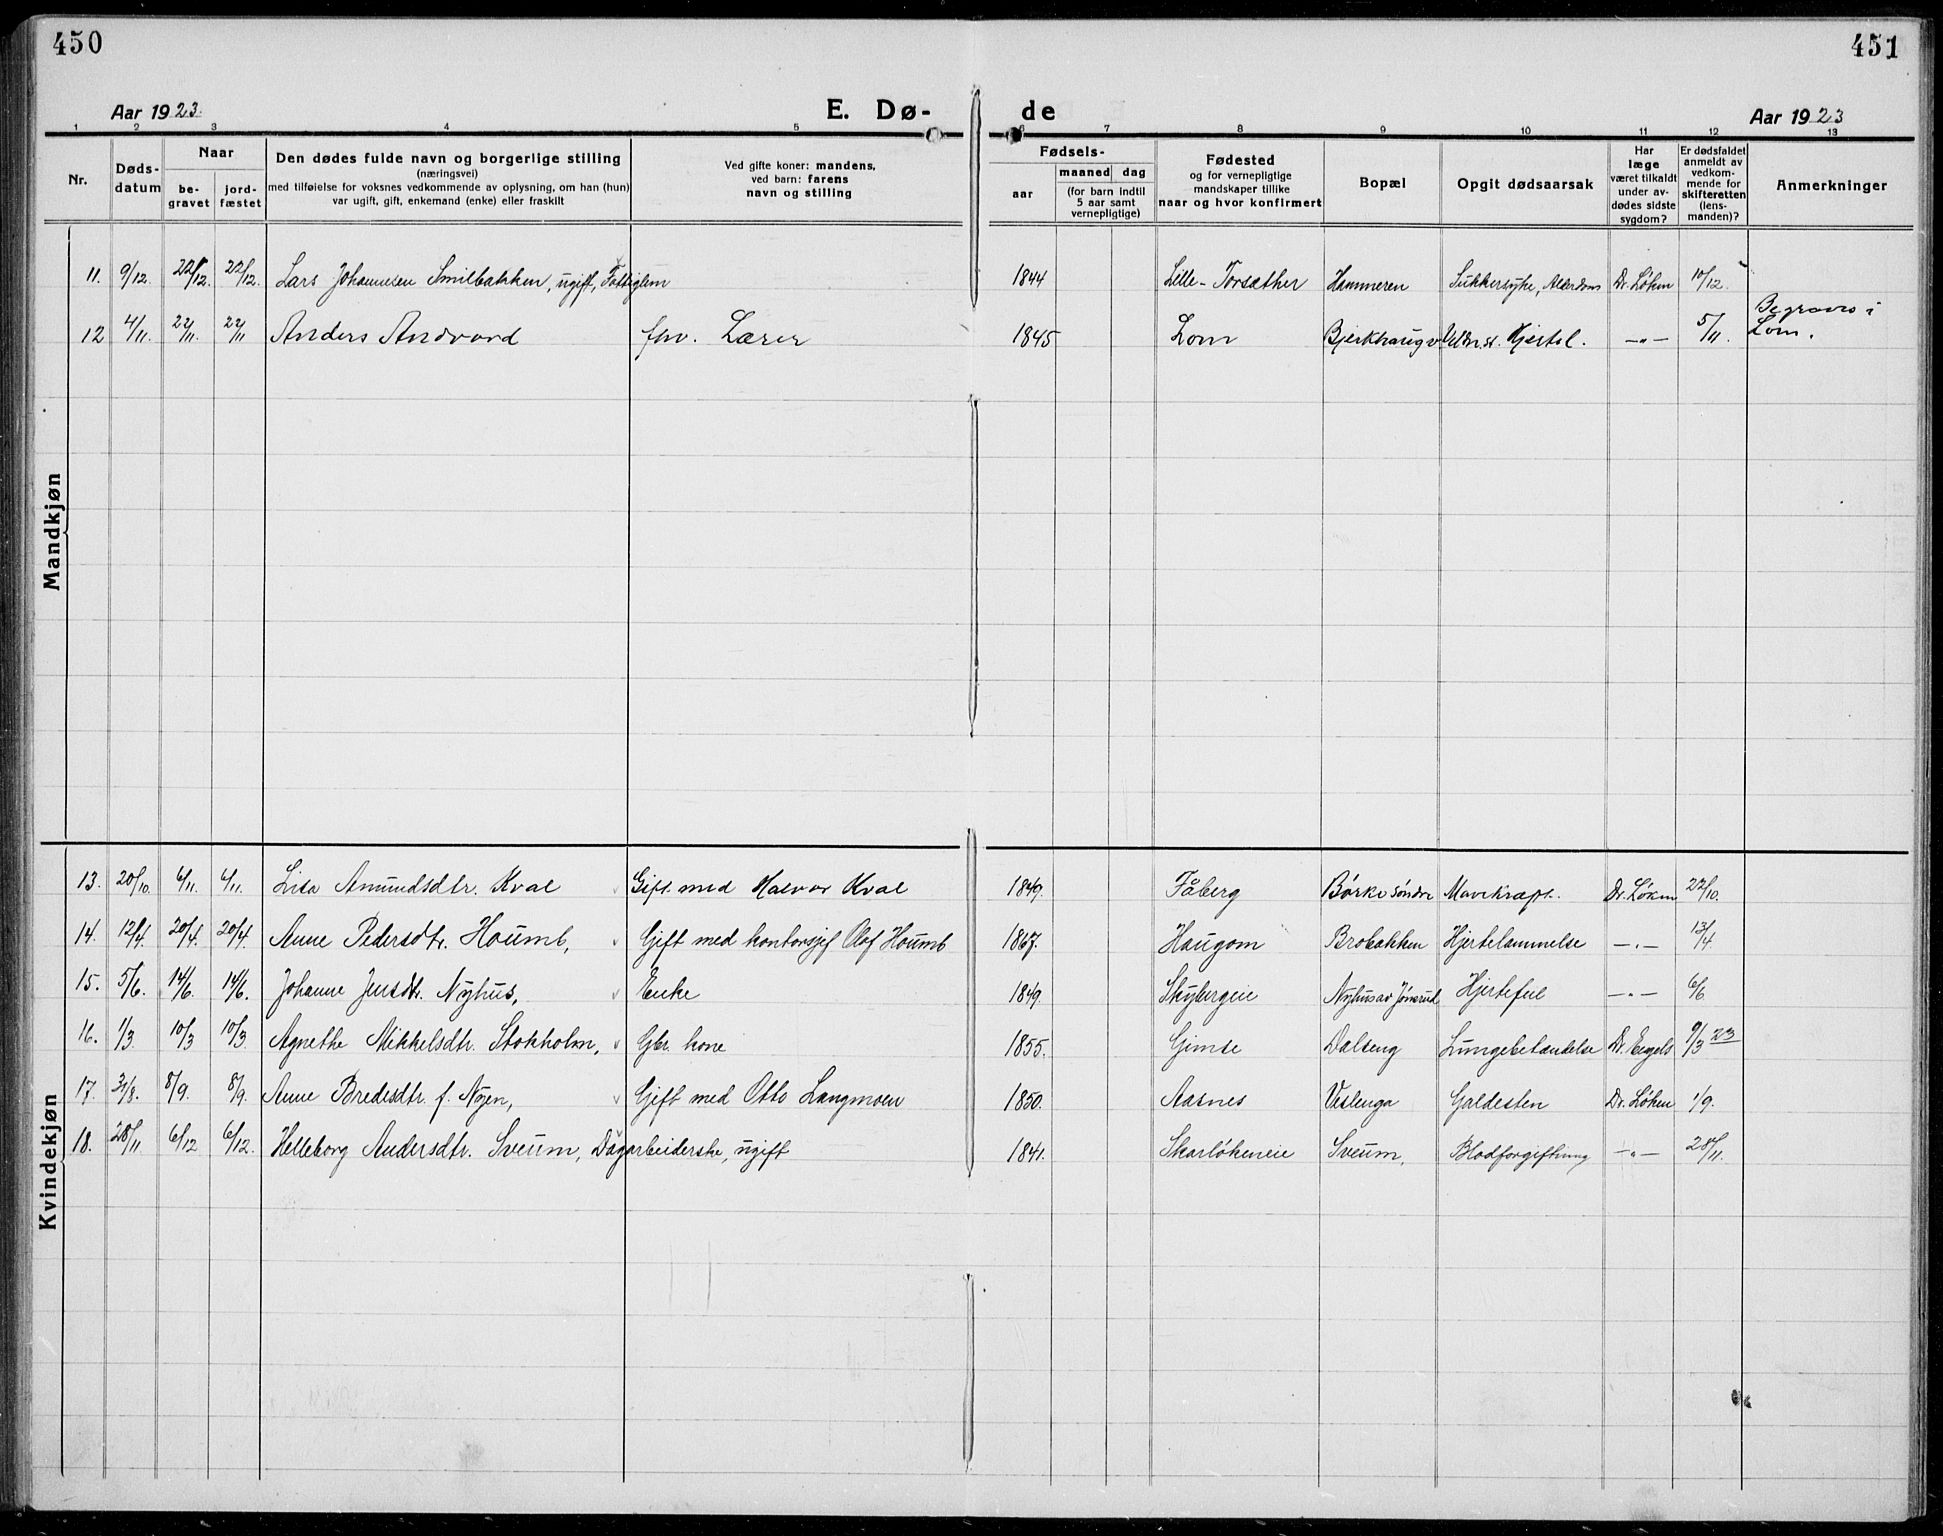 450
451
Aar 1923.
E. Dø-
de
Aar 1923
1 2 3 4 5 6 7 8 9 10 11 12 13
Nr.
Døds-
datum
Naar
be-
gravet
jord-
fæstet
Den dødes fulde navn og borgerlige stilling
(næringsvei)
med tilføielse for voksnes vedkommende av oplysning, om han (hun)
var ugift, gift, enkemand (enke) eller fraskilt
Ved gifte koner: mandens,
ved barn: farens
navn og stilling
Fødsels-
aar
maaned dag
(for barn indtil
5 aar samt
vernepligtige)
Fødested
og for vernepligtige
mandskaper tillike
naar og hvor konfirmert
Bopæl
Opgit dødsaarsak
Har
læge
været tilkaldt
under av-
dødes sidste
sygdom?
Er dødsfaldet
anmeldt av
vedkom-
mende for
skifteretten
(lens-
manden)?
Anmerkninger
Mandkjøn
11. 9/12. 22/12. 22/12. Lars Johannesen Smilbakken, ugift, Fattiglem 1844 Lille-Torsæther Hammeren Sukkersyke, Alderdom Dr. Løken 10/12.
12 4/11. 22/11. 22/11 Anders Andvord fhv. Lærer 1845 Lom Bjerkhaug v/ Veldre st. Hjertel. -„- 5/11. Begraves i
Lom.
Kvindekjøn
13. 20/10. 6/11. 6/11. Lisa Amundsdtr. Kval Gift med Halvor Kval 1849. Fåberg Børke søndre Mavekræft. Dr. Løken 22/10.
14. 12/4. 20/4. 20/4. Anne Pedersdtr. Houmb, Gift med kontorsjef Olaf Houmb 1867. Haugom Brobakken Hjertelammelse -„- 13/4
15. 5/6. 14/6. 14/6. Johanne Jensdtr. Nyhus, Enke 1849. Skybergeie Nyhus av Jønsrud Hjertefeil -„- 6/6
16. 1/3. 10/3 10/3 Agnethe Mikkelsdtr. Stokholm, Gbr. kone 1855. Gimse Dalseng Lungebetændelse Dr. 9/3 23
17. 31/8. 8/9. 8/9. Anne Bredesdtr. f. Nøjen, Gift med Otto Langmoen 1850. Aasnes Veslenga Galdesten Dr. Løken 1/9.
18. 28/11. 6/12 6/12. Helleborg Andersdtr. Sveum, Dagarbeiderske, ugift 1841. Skarløkeneie Sveum, Blodforgiftning -„- 28/11.